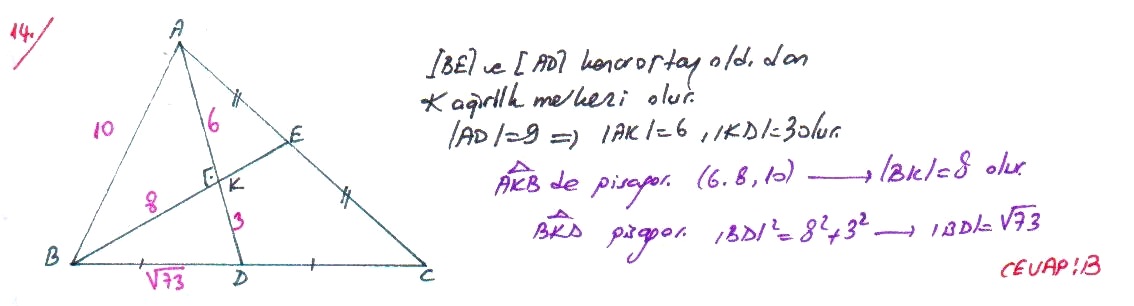 14.
A
10
6
E
K
8
3
B
√73
D
C
[BE] ve [AD] kenarortay old. dan
K ağırlık merkezi olur.
|AD|=9 => |AK|=6, |KD|=3 olur.
AKB de pisagor. (6.8,10) → |BK|=8 olur.
BKD pisagor. |BD|²=8²+3² → |BD|=√73
CEVAP:B